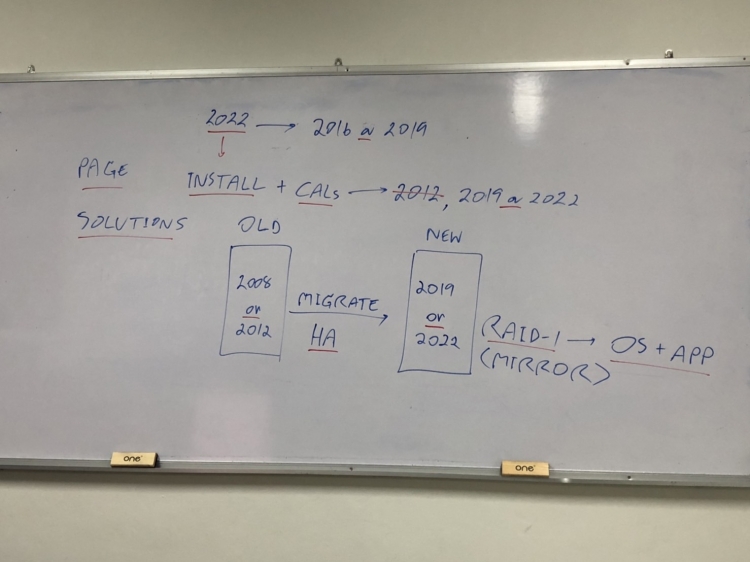 2022 → 2016 or 2019
↓
PAGE
INSTALL + CALs → 2012, 2019 or 2022
SOLUTIONS
OLD
NEW
2008
or
2012
MIGRATE
HA
2019
or
2022
RAID-1 → OS + APP
(MIRROR)
one
one